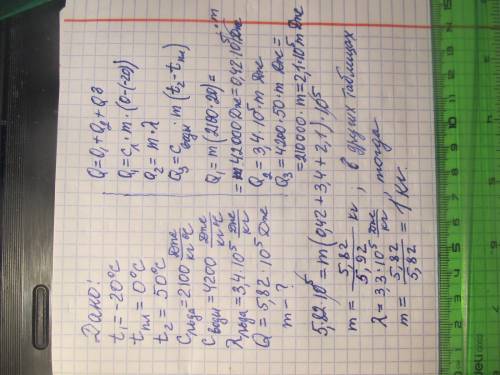 Дано:
t₁ = -20°C
tпл = 0°C
t₂ = 50°C
Cльда = 2100 Дж/кг°C
Cводы = 4200 Дж/кг°C
λльда = 3,4·10⁵ Дж/кг
Q = 5,82·10⁵ Дж
m - ?
Q = Q₁ + Q₂ + Q₃
Q₁ = Cл · m · (0-(-20))
Q₂ = m · λ
Q₃ = Cводы · m (t₂ - tпл)
Q₁ = m (2100·20) =
= m 42000 Дж = 0,42·10⁵ · m
Q₂ = 3,4·10⁵ · m Дж
Q₃ = 4200·50·m Дж =
= 210000·m = 2,1·10⁵ m Дж
5,82·10⁵ = m (0,42 + 3,4 + 2,1)·10⁵
m = 5,82/5,92 кг, в других таблицах
λ = 3,3·10⁵ Дж/кг, тогда
m = 5,82/5,82 = 1 кг.